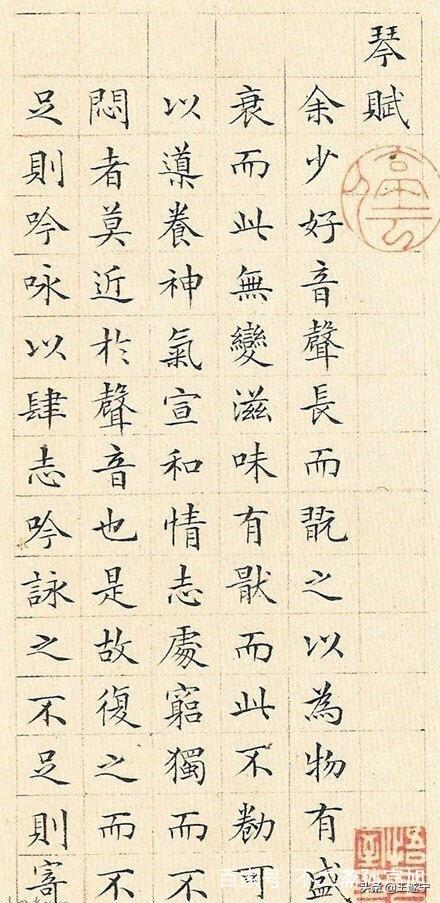 琴賦
余少好音聲長而翫之以為物有盛
衰而此無變滋味有猒而此不勌可
以導養神氣宣和情志處窮獨而不
悶者莫近於聲音也是故復之而不
足則吟咏以肆志吟詠之不足則寄
停云
头条@王遂宁